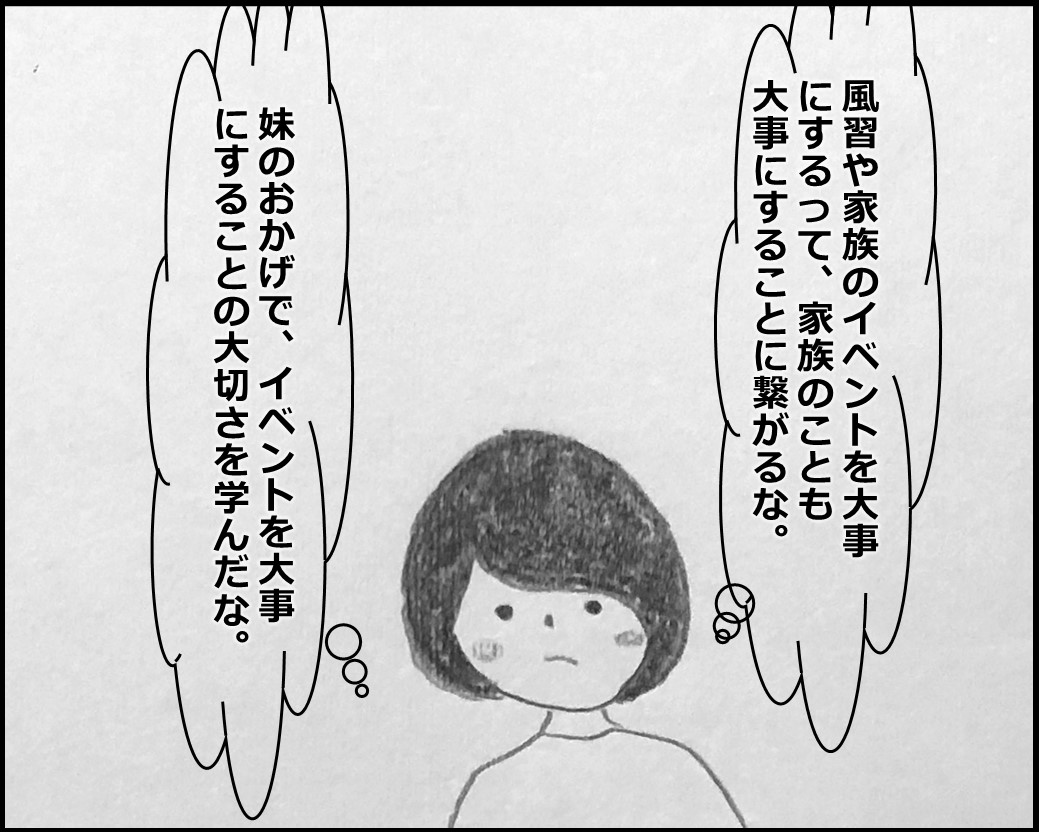 風習や家族のイベントを大事
にするって、家族のことも
大事にすることに繋がるな。
妹のおかげで、イベントを大事
にすることの大切さを学んだな。